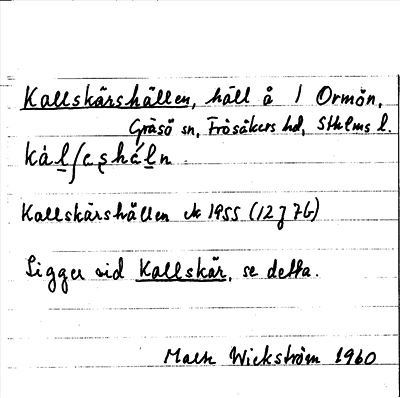 Kallskärshällen, häll å / Ormön,
Gräsö sn, Frösåkers hd, Sthlms l.
Kallskärshällen ek 1955 (12 J 7b)
Ligger vid Kallskär, se detta.
Wickström 1960